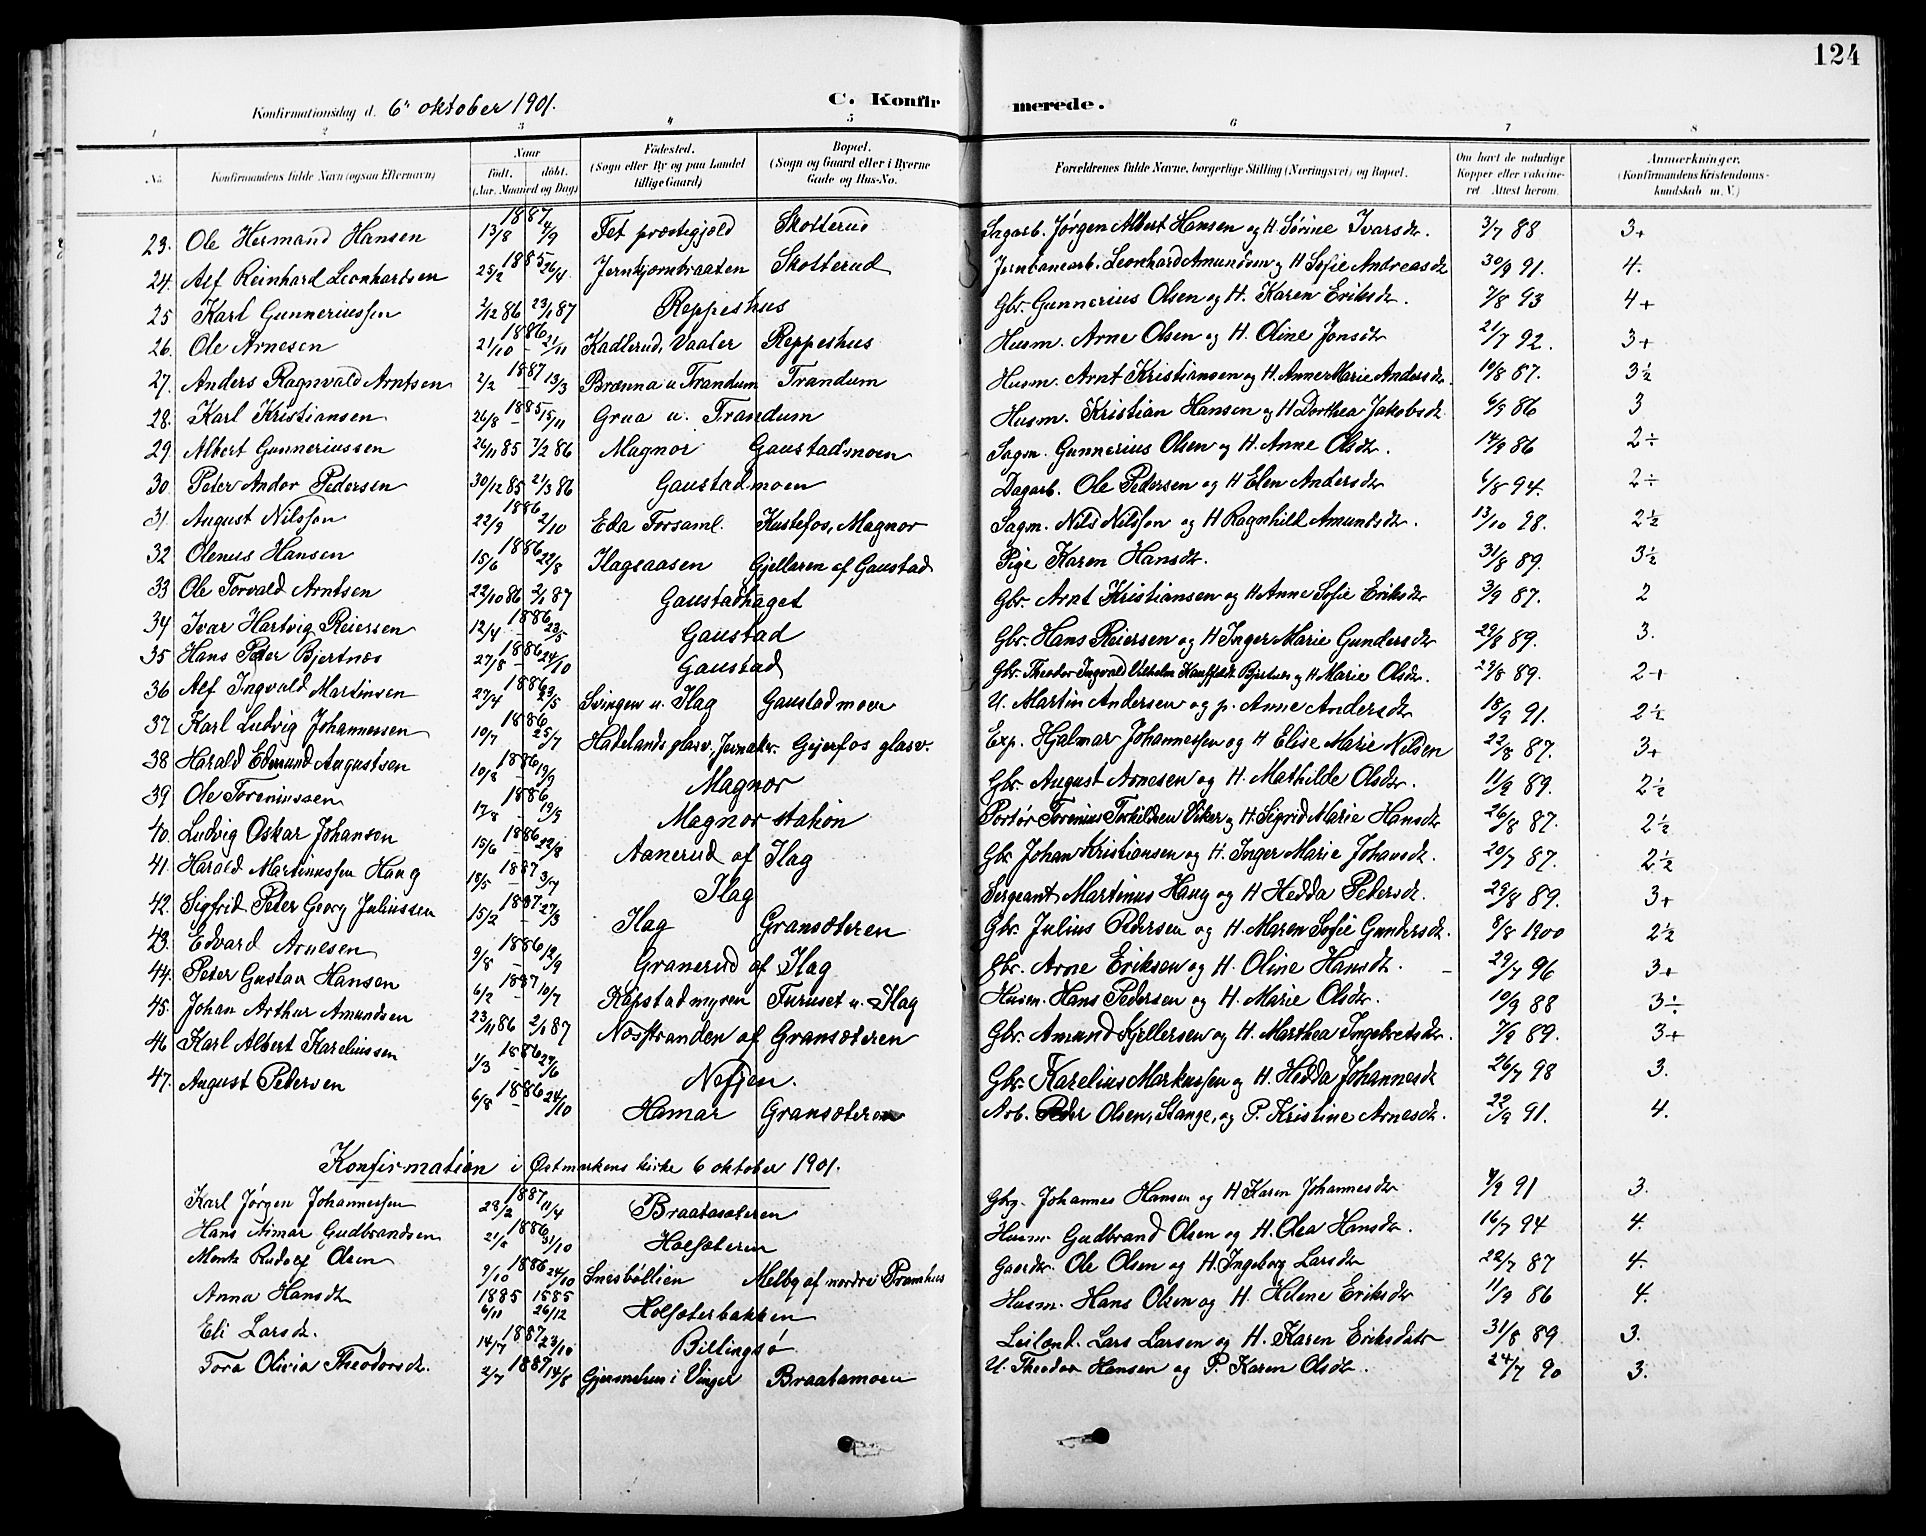 124
Konfirmationsdag d. 6' oktober 1901. C. Konfirmerede.
1 2 3 4 5 6 7 8
No. Konfirmandens fulde Navn (ogsaa Efternavn) Naar Födt. döbt. (Aar, Maaned og Dag) Födested. (Sogn eller By og paa Landet tillige Gaard) Bopæl. (Sogn og Gaard eller i Byerne Gade og Hus-No. Forældrenes fulde Navne, borgerlige Stilling (Næringsvei) og Bopæl. Om havt de naturlige Kopper eller vakcineret. Attest herom. Anmærkninger. (Konfirmandens Kristendomskundskab m. V.)
23. Ole Hermand Hansen 1887 13/8 4/9 Fet præstegjeld Skotterud Sagarb. Jørgen Albert Hansen og H. Sørine Ivarsdr. 3/7 88 3+
24. Alf Reinhard Leonhardsen 1885 25/2 26/4 Jernhjornbraaten Skotterud Jernbanearb. Leonhard Amundsen og H Sofie Andreasdr 30/9 91. 4.
25 Karl Gunneriussen 2/12 86 23/1 87 Reppeshus Gbr. Gunnerius Olsen og H. Karen Eriksdr. 7/8 93 4+
26. Ole Arnesen 1886 21/10 - 21/11 Kadlerud, Vaaler Reppeshus Husm. Arne Olsen og H. Oline Jonsdr 21/7 92. 3+
27. Anders Ragnvald Arntsen 1887 2/2 - 13/3 Brænna u Trandum Trandum Husm. Arnt Kristiansen og H. Anne Marie Andersdr. 10/8 87. 3½
28. Karl Kristiansen 1885 26/8 - 15/11 Grua u. Trandum Husm. Kristian Hansen og H Dorthea Jakobsdr. 6/9 86 3
29. Albert Gunneriussen 26/11 85 7/2 86 Magnor Gaustadmoen Sagm. Gunnerius Olsen og H. Anne Olsdr. 14/9 86 2÷
30. Peter Andor Pedersen 30/12 85 21/3 86 Gaustadmoen Dagarb. Ole Pedersen og H Elen Andersdr 6/8 94. 2÷
31. August Nilssen 1886 22/9 2/10 Eda Forsaml. Kustefos, Magnor Sagm. Nils Nilssen og H Ragnhild Amundsdr. 13/10 98. 2½
32 Olenus Hansen 1886 15/6 22/8 Ilagsaasen Gjelleren af Gaustad Pige Karen Hansdr. 31/8 89. 3½
33 Ole Torvald Arntsen 22/10 86 2/1 87 Gaustadhaget Gbr. Arnt Kristiansen og H Anne Sofie Eriksdr 3/9 87. 2
34 Ivar Hartvig Reiersen 1886 12/4 - 23/5 Gaustad Gbr. Hans Reiersen og H Inger Marie Gundersdr 29/8 89. 3.
35 Hans Peter Bjertnæs 1886 27/8 - 24/10 Gaustad Gbr. Theodor Ingvald Vilhelm Bjertnes og H Marie Olsdr. 29/8 89. 2+
36 Alf Ingvald Martinsen 1886 27/4 23/5 Svingen u. Ilag Gaustadmoen U. Martin Andersen og p. Anne Andersdr 18/9 91. 2½
37 Karl Ludvig Johannessen 1886 10/7 25/7 Hadelands glasv. Jevnaker Gejerfos glasv. Exp. Hjalmar Johannessen og H Elise Marie Nilsen 22/8 87. 3+
38 Harald Edmund Augustsen 1886 10/8 19/9 Magnor Gbr. August Arnesen og H. Mathilde Olsdr. 11/9 89. 2½
39 Ole Foreniussen 1886 17/8 19/9 Magnor station Portør Forenius Torkildsen Viker og H. Sigrid Marie Hansdr 26/8 87. 2½
40. Ludvig Oskar Johansen 1886 15/6 22/8 Aanerud af Ilag Gbr. Johan Kristiansen og H. Inger Marie Johansdr. 20/7 87. 2½
41. Harald Martinussen Haug 1887 18/5 - 3/7 Ilag Sergeant Martinus Haug og H Hedda Pedersdr. 29/8 89. 3+
42. Sigfrid Peter Georg Juliussen 1887 15/2 - 27/3 Ilag Gransæteren Gbr. Julius Pedersen og H. Maren Sofie Gundersdr. 8/8 1900 2½
43. Edvard Arnesen 1886 9/8 - 12/9 Granerud af Ilag Gbr. Arne Eriksen og H. Oline Hansdr. 29/7 96 3+
44. Peter Gustav Hansen 1887 6/2 - 10/7 Kapstadmyren Furuset u. Ilag Husm. Hans Pedersen og H. Marie Olsdr. 10/9 88 3÷
45. Johan Arthur Amundsen 23/11 86 2/1 87 Nosstranden af Gransæteren Gbr. Amund Kjellersen og H. Marthea Ingebretsdr. 7/9 89. 3+
46 Karl Albert Kareliussen 1886 1/3 - 27/6 Nessjen. Gbr. Karelius Markussen og H. Hedda Johannesdr 26/7 98 3.
47. August Pedersen 1886 6/8 - 24/10 Hamar Gransæteren Arb. Peder Olsen, Stange, og P. Kristine Arnesdr. 22/9 91. 4.
Konfirmation i Østmarkens kirke 6 oktober 1901.
Karl Jørgen Johannessen 1887 28/2 11/4 Braatasæteren Gbr. Johannes Hansen og H Karen Johannesdr 4/9 91 3.
Hans Aimar Gudbrandsen 1886 21/8 31/10 Holsæteren Husm. Gudbrand Olsen og H. Olea Hansdr. 16/7 94 4.
Montz Rudolf Olsen 1886 9/10 24/10 Snesböllien Melby af nordre Pramhus Gaardbr. Ole Olsen og H. Ingeborg Larsdr 22/7 87 4.
Anna Hansdr 1885 6/11 1885 26/12 Holsæterbakken Husm. Hans Olsen og H. Helene Eriksdr 11/9 86 4.
Eli Larsdr. 1887 14/7 23/10 Billingsø Leilænd. Lars Larsen og H. Karen Eriksdatr 31/8 89 3.
Tora Olivia Theodorsdr. 1887 2/7 14/8 Gjersmehus i Vinger Braatamoen U. Theodor Hansen og P. Karen Olsdr. 24/7 90 3.